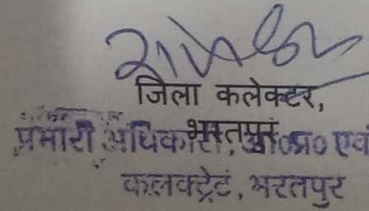 जिला कलेक्टर,
भरतपुर
प्रभारी अधिकारी, आ०प्र० एवं
कलक्ट्रेट, भरतपुर